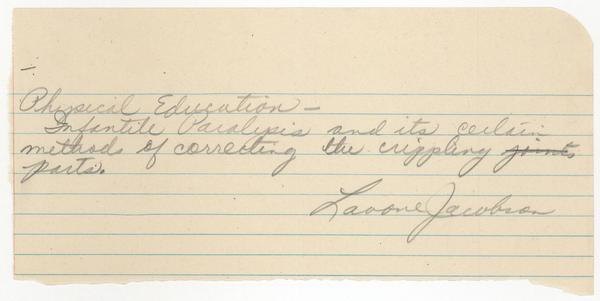 Physical Education —
Infantile Paralysis and its certain
methods of correcting the crippling joints
parts.
Lavone Jacobson